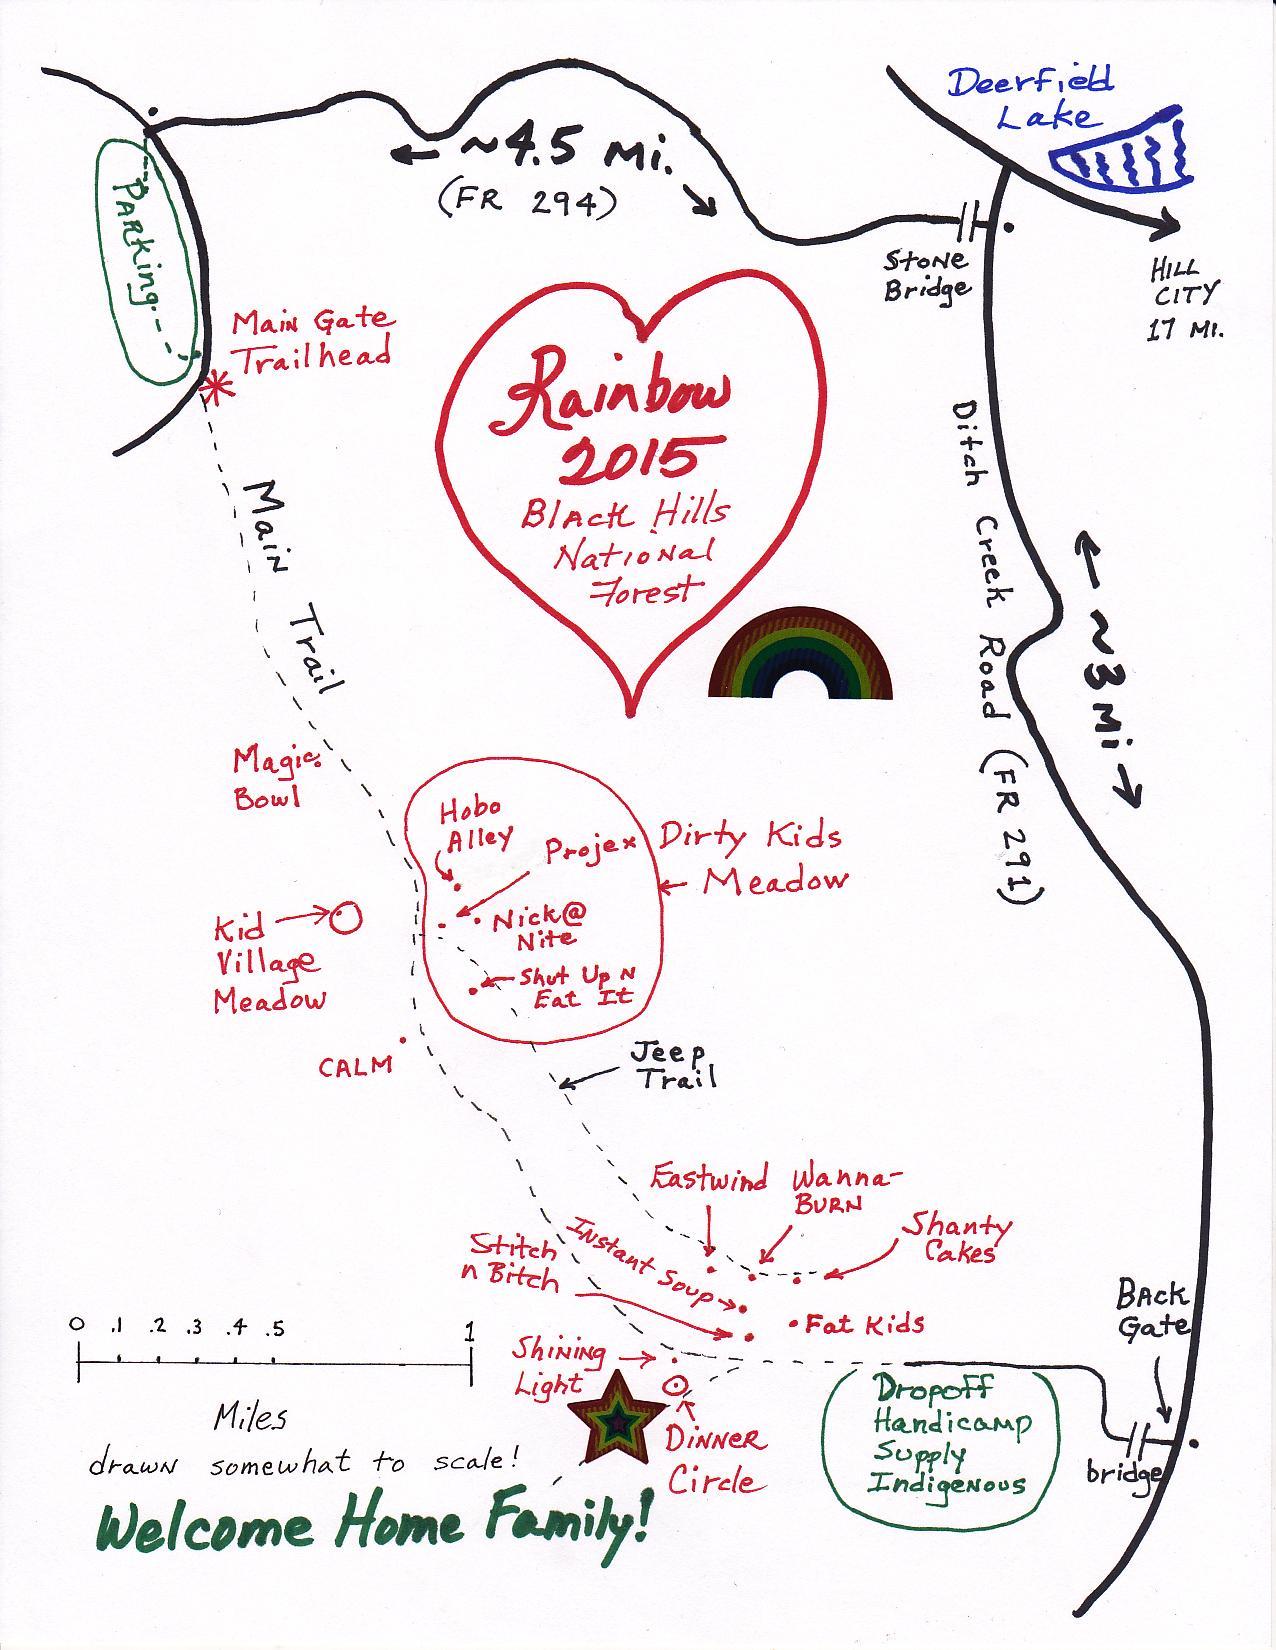 Deerfield
Lake
~4.5 Mi.
(FR 294)
Parking
Stone
Bridge
HILL
CITY
17 MI.
Main Gate
Trailhead
Rainbow
2015
Black Hills
National
Forest
Main Trail
Ditch Creek Road (FR 291)
~3 Mi
Magic
Bowl
Hobo
Alley
Projex
Dirty Kids
Meadow
Nick@
Nite
Kid
Village
Meadow
Shut Up N
Eat It
CALM
Jeep
Trail
Eastwind
Wanna-
BURN
Shanty
Cakes
Instant Soup
Stitch
n Bitch
Fat Kids
Back
Gate
0 .1 .2 .3 .4 .5 1
Miles
drawn somewhat to scale!
Shining
Light
Dinner
Circle
Dropoff
Handicamp
Supply
Indigenous
bridge
Welcome Home Family!